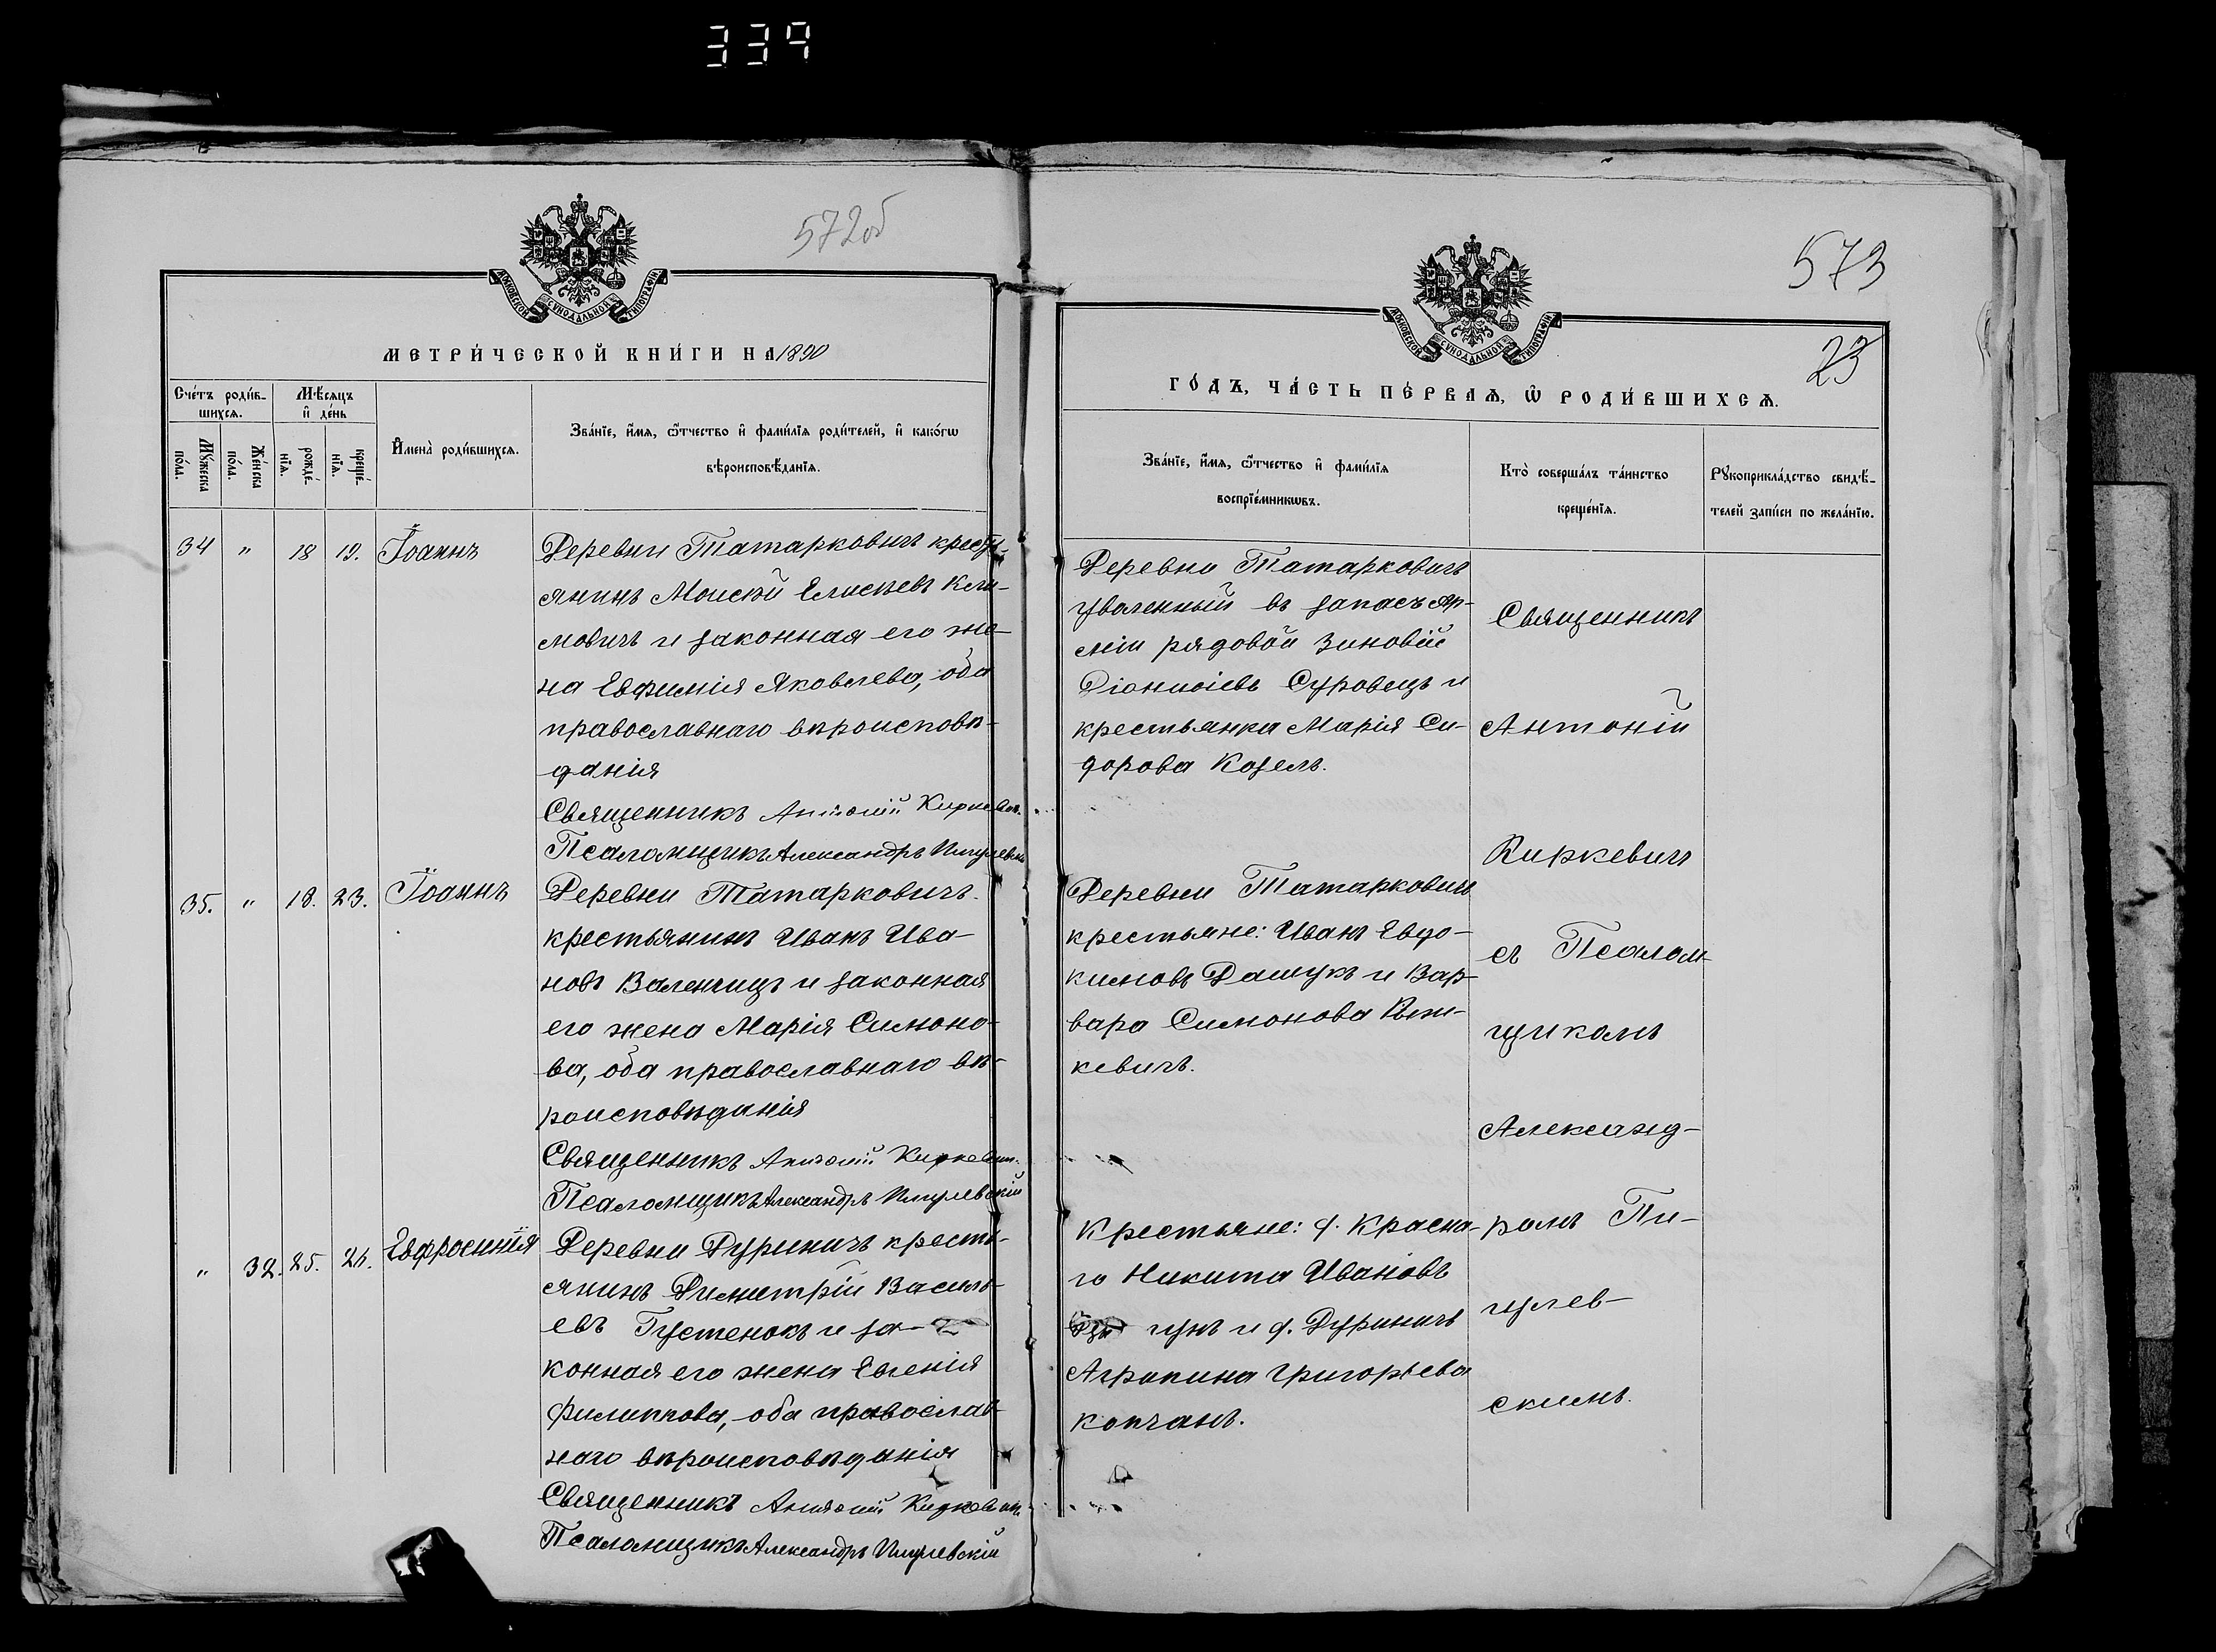 339
572об
МОСКОВСКОЙ СУНОДАЛЬНОЙ ТИПОГРАФІИ
МЕТРИ́ЧЕСКОЙ КНИ́ГИ НА 1890
Сче́тъ роди́в-
шихсѧ.
Мѣ́сѧцъ
и҆ де́нь
Мꙋ́жеска
по́ла.
Же́нска
по́ла.
рожде́-
нїѧ.
креще́-
нїѧ.
И҆мена̀ роди́вшихсѧ.
Зва́нїе, и҆́мѧ, ѻ҆́тчество и҆ фами́лїѧ роди́телей, и҆ како́гѡ
вѣроисповѣ́данїѧ.
34 " 18 19. Іоаннъ
Деревни Татарковичъ кресть-
янинъ Моисей Елисѣевъ Кли-
мовичъ и законная его же-
на Евфимія Яковлева, оба
православнаго вѣроисповѣ-
данія
Священникъ Антоній Киркевичъ.
Псаломщикъ Александръ Пигулевскій
35. " 18. 23. Іоаннъ
Деревни Татарковичъ
крестьянинъ Иванъ Ива-
новъ Валенчицъ и законная
его жена Марія Симоно-
ва, оба православнаго вѣ-
роисповѣданія
Священникъ Антоній Киркевичъ.
Псаломщикъ Александръ Пигулевскій
" 32. 25. 26. Евфросинія
Деревни Дуриничъ кресть-
янинъ Димитрій Василь-
евъ Густенокъ и за-
конная его жена Евгенія
Филиппова, оба православ-
наго вѣроисповѣданія
Священникъ Антоній Киркевичъ
Псаломщикъ Александръ Пигулевскій
573
23
МОСКОВСКОЙ СУНОДАЛЬНОЙ ТИПОГРАФІИ
ГО́ДЪ, ЧА́СТЬ ПЕ́РВАѦ, Ѡ҆ РОДИ́ВШИХСѦ.
Зва́нїе, и҆́мѧ, ѻ҆́тчество и҆ фами́лїѧ
воспрїе́мникѡвъ.
Кто̀ соверша́лъ та́инство
креще́нїѧ.
Рꙋкоприкла́дство свидѣ́-
телей за́писи по жела́нїю.
Деревни Татарковичъ
уволенный въ запасъ ар-
міи рядовой Зиновій
Діонисіевъ Суровецъ и
крестьянка Марія Си-
дорова Козелъ.
Деревни Татарковичъ
крестьяне: Иванъ Евдо-
кимовъ Дашукъ и Вар-
вара Симонова
кевичъ.
Крестьяне: д. Красна-
го Никита Ивановъ
и д. Дуриничъ
Агрипина Григорьева
Копчанъ.
Священникъ
Антоній
Киркевичъ
съ Псалом-
щикомъ
Александ-
ромъ Пи-
гулев-
скимъ.